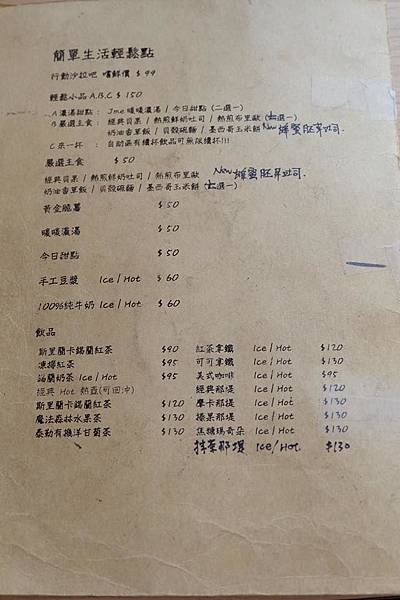 簡單生活輕鬆點
行動沙拉吧 嚐鮮價 $ 99
輕鬆小品A.B.C $ 150
A 濃湯甜點 : Jme 暖暖濃湯 / 今日甜點 (二選一)
B 嚴選主食 : 經典貝果 / 熱煎鮮奶吐司 / 熱煎布里歐 (選一)
奶油香草飯 / 貝殼碗麵 / 墨西哥玉米餅 New 蜂蜜胚芽吐司.
C 來一杯 : 自助區有續杯飲品可無限續杯!!!
嚴選主食 $ 50
經典貝果 / 熱煎鮮奶吐司 / 熱煎布里歐 New 蜂蜜胚芽吐司.
奶油香草飯 / 貝殼碗麵 / 墨西哥玉米餅 (選一)
黃金脆薯 $ 50
暖暖濃湯 $ 50
今日甜點 $ 50
手工豆漿 Ice / Hot $ 60
100%純牛奶 Ice / Hot $ 60
飲品
斯里蘭卡錫蘭紅茶 $90 紅茶拿鐵 Ice / Hot $120
漂浮紅茶 $95 可可拿鐵 Ice / Hot $130
錫蘭奶茶 Ice / Hot $95 美式咖啡 Ice / Hot $95
經典 Hot 熱壺(可回沖) 經典那堤 Ice / Hot $120
斯里蘭卡錫蘭紅茶 $120 摩卡那堤 Ice / Hot $130
魔法森林水果茶 $130 榛果那堤 Ice / Hot $130
泰勒有機洋甘菊茶 $130 焦糖瑪奇朵 Ice / Hot $130
抹茶那堤 Ice / Hot. $130